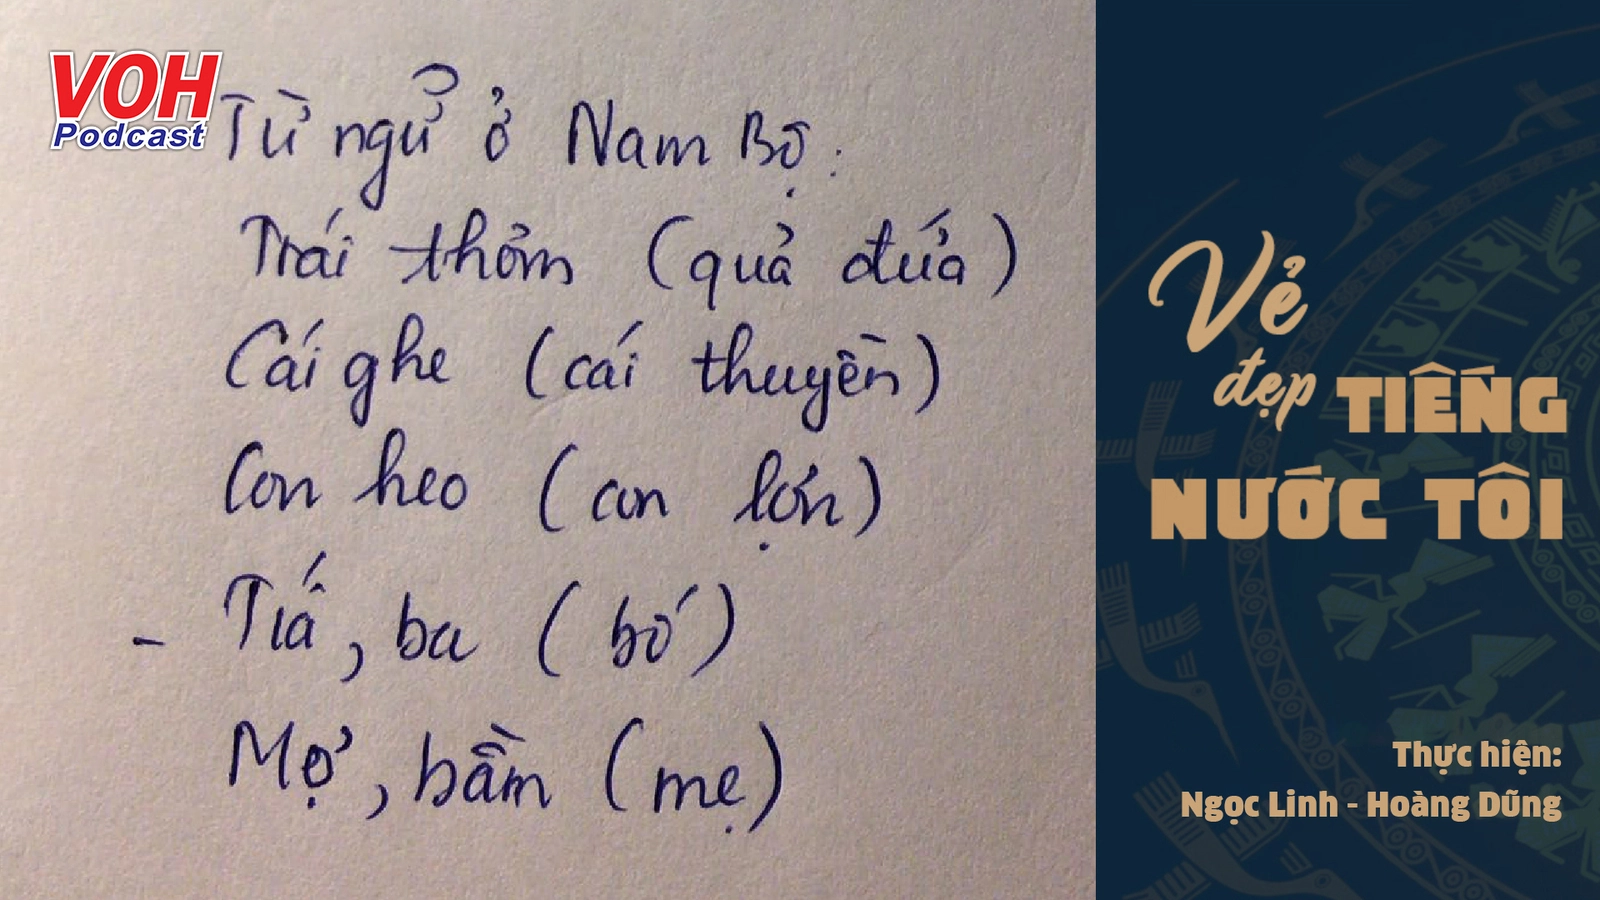 VOH
Podcast
Từ ngữ ở Nam Bộ:
Trái thơm (quả dứa)
Cái ghe (cái thuyền)
Con heo (con lợn)
- Tía, ba (bố)
Mợ, bầm (mẹ)
Vẻ
đẹp TIẾNG
NƯỚC TÔI
Thực hiện:
Ngọc Linh - Hoàng Dũng